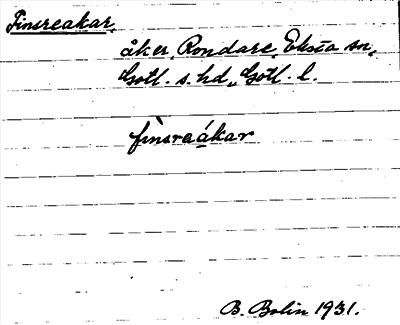 Finsreakar,
åker, Rondare, Eksta sn,
Gotl. s. hd., Gotl. l.
finsraákar
B. Bolin 1931.